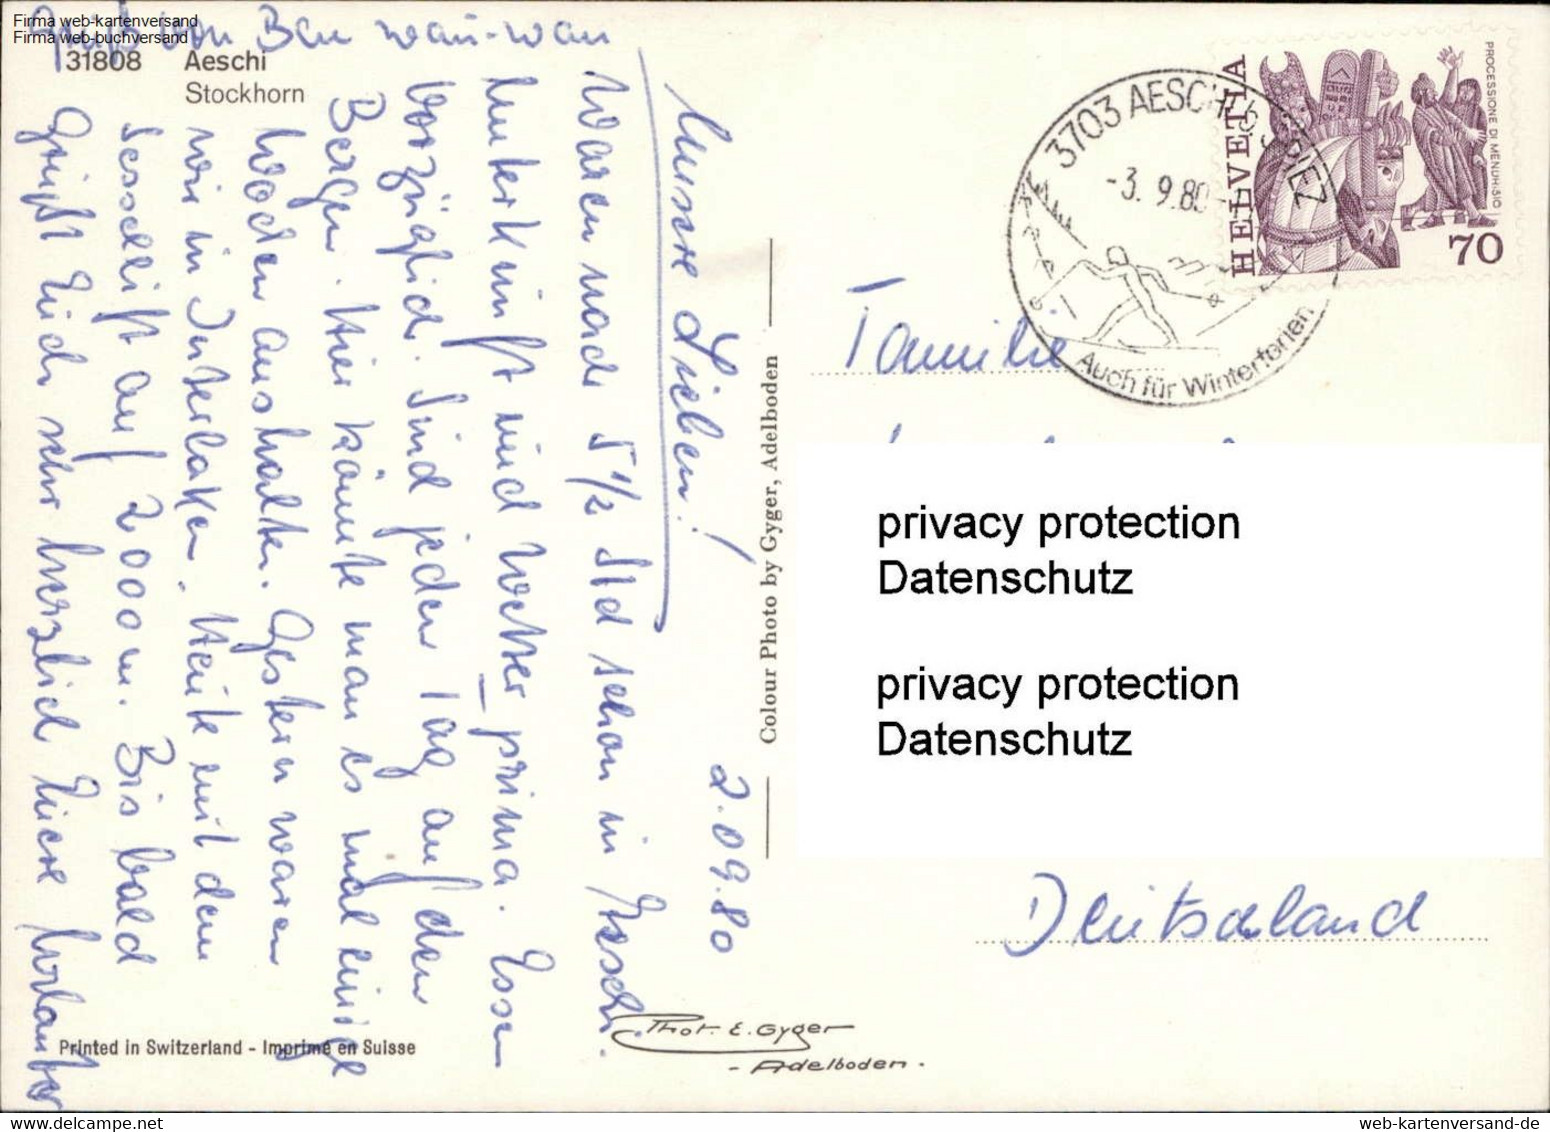 Firma web-kartenversand
Firma web-buchversand
31808 Aeschi
Stockhorn
2.09.80
Unsere Lieben!
Waren nach 5 1/2 Std schon in Aeschi.
Unterkunft und Wetter prima. Essen
vorzüglich. Sind jeden Tag auf den
Bergen. Hier könnte man es mal einige
Wochen aushalten. Gestern waren
wir in Interlaken. Heute mit dem
Sessellift auf 2000 m. Bis bald
Grüßt Euch sehr herzlich Eure
Gruß von wau-wau
Colour Photo by Gyger, Adelboden
Printed in Switzerland - Imprimé en Suisse
Phot. E. Gyger
- Adelboden -
3703 AESCHI b. SPIEZ
-3. 9.80
Auch für Winterferien
HELVETIA
PROCESSIONE DI MENDRISIO
70
Familie
privacy protection
Datenschutz
privacy protection
Datenschutz
Deutschland
web-kartenversand-de